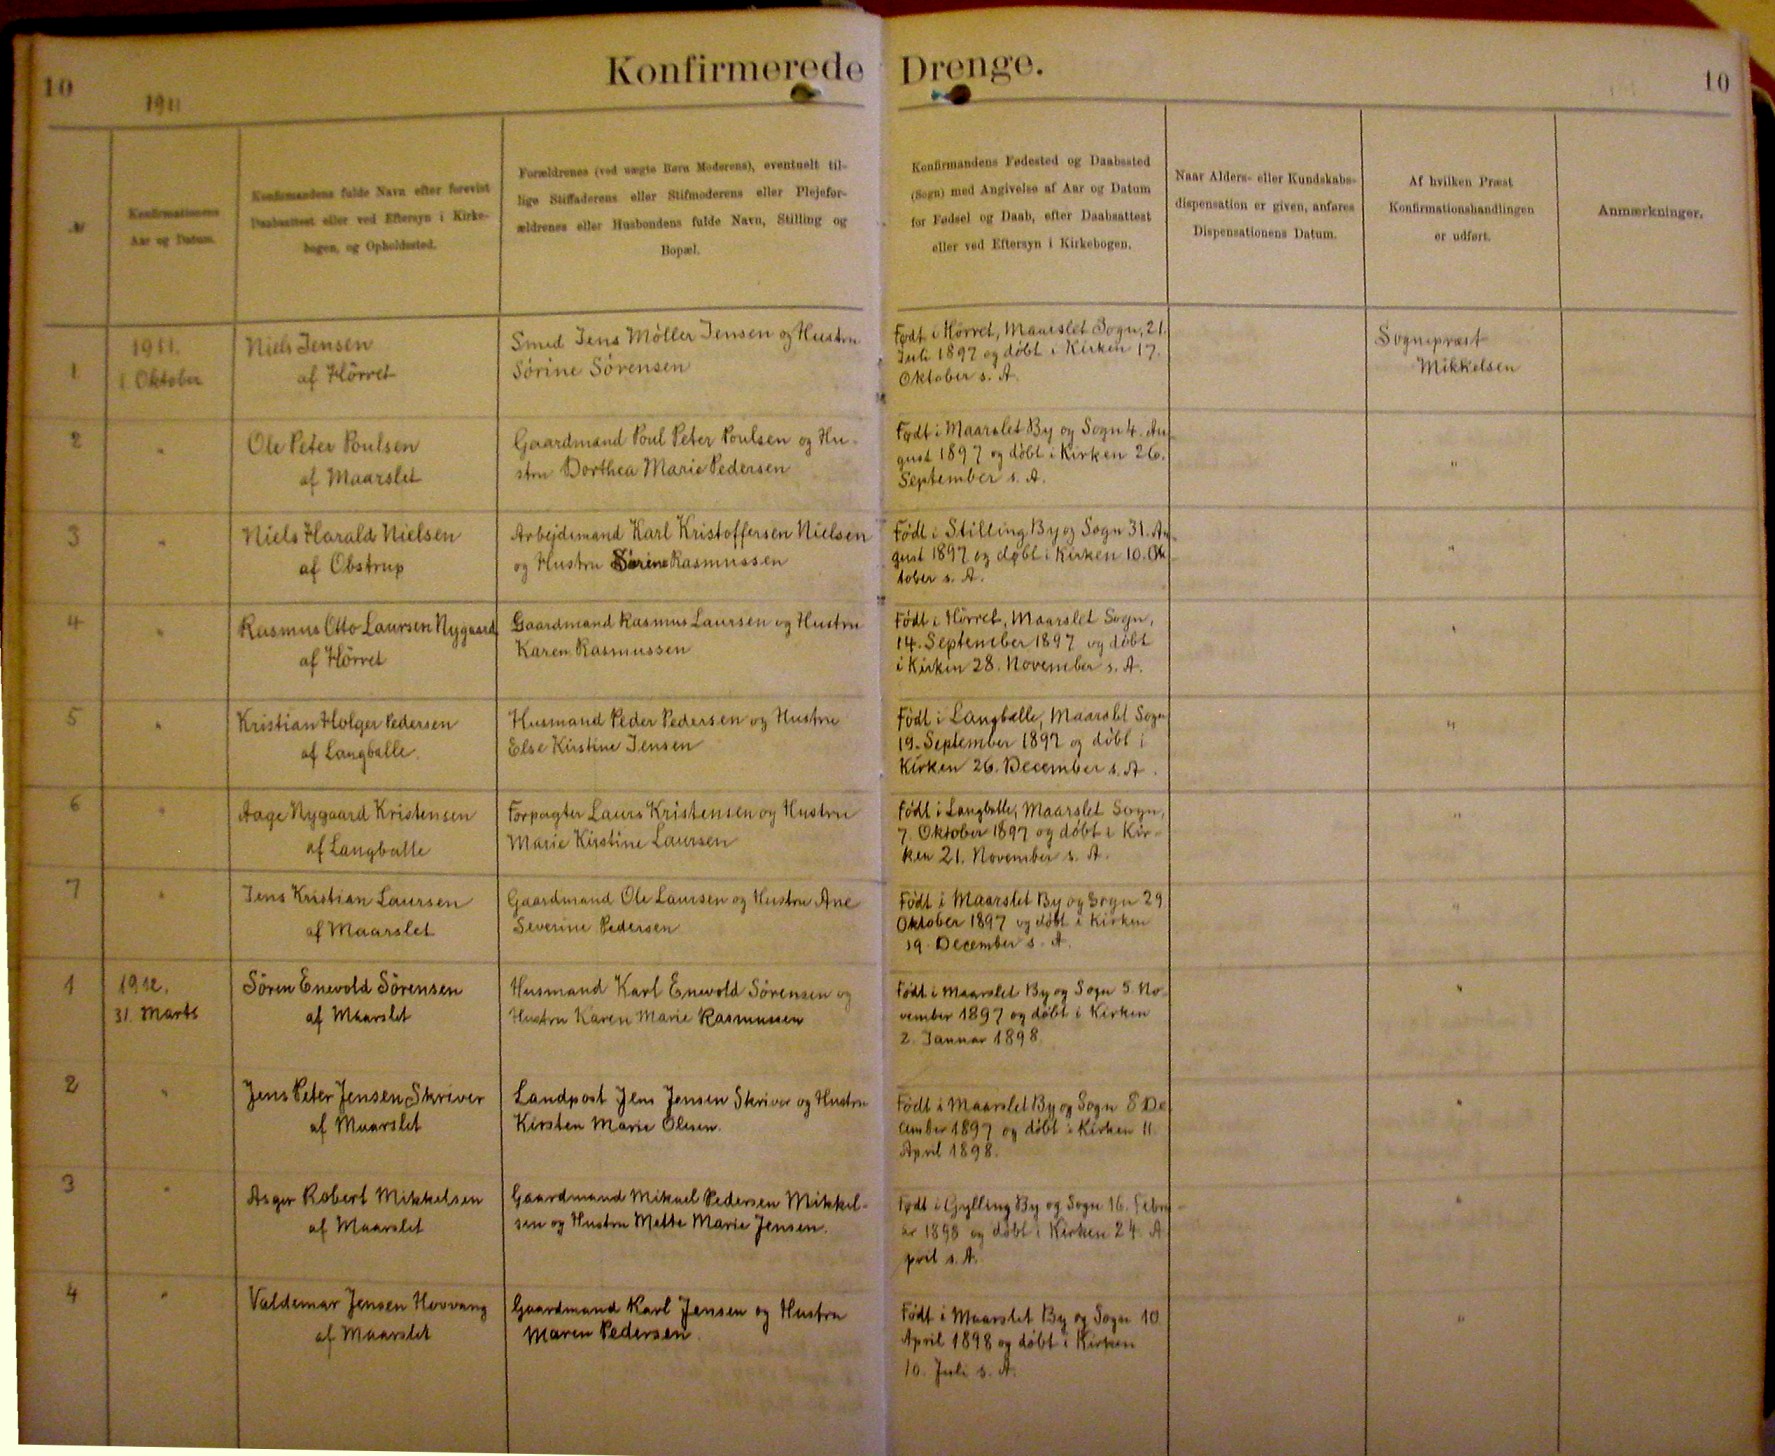 10
1911
Konfirmerede Drenge.
10
№
Konfirmationens
Aar og Datum.
Konfirmandens fulde Navn efter forevist
Daabsattest eller ved Eftersyn i Kirke-
bogen, og Opholdssted.
Forældrenes (ved uægte Børn Moderens), eventuelt til-
lige Stiffaderens eller Stifmoderens eller Plejefor-
ældrenes eller Husbondens fulde Navn, Stilling og
Bopæl.
Konfirmandens Fødested og Daabssted
(Sogn) med Angivelse af Aar og Datum
for Fødsel og Daab, efter Daabsattest
eller ved Eftersyn i Kirkebogen.
Naar Alders- eller Kundskabs-
dispensation er given, anføres
Dispensationens Datum.
Af hvilken Præst
Konfirmationshandlingen
er udført.
Anmærkninger.
1
1911.
1. Oktober
Niels Jensen
af Hörret
Smed Jens Möller Jensen og Hustru
Sörine Sörensen
Födt i Hörret, Maarslet Sogn, 21.
Juli 1897 og döbt i Kirken 17.
Oktober s. A.
Sognepræst
Mikkelsen
2
"
Ole Peter Poulsen
af Maarslet
Gaardmand Poul Peter Poulsen og Hu-
stru Dorthea Marie Pedersen
Födt i Maarslet By og Sogn 4. Au-
gust 1897 og döbt i Kirken 26.
September s. A.
"
3
"
Niels Harald Nielsen
af Obstrup
Arbejdsmand Karl Kristoffersen Nielsen
og Hustru Sörine Rasmussen
Födt i Stilling By og Sogn 31. Au-
gust 1897 og döbt i Kirken 10. Ok
tober s. A.
"
4
"
Rasmus Otto Laursen Nygaard
af Hörret
Gaardmand Rasmus Laursen og Hustru
Karen Rasmussen
Födt i Hörret, Maarslet Sogn,
14. September 1897 og döbt
i Kirken 28. November s. A.
"
5
"
Kristian Holger Pedersen
af Langballe
Husmand Peder Pedersen og Hustru
Else Kirstine Jensen
Födt i Langballe, Maarslet Sogn
19. September 1897 og döbt i
Kirken 26. December s. A.
"
6
"
Aage Nygaard Kristensen
af Langballe
Forpagter Laurs Kristensen og Hustru
Marie Kirstine Laursen
Födt i Langballe, Maarslet Sogn,
7. Oktober 1897 og döbt i Kir-
ken 21. November s. A.
"
7
"
Jens Kristian Laursen
af Maarslet
Gaardmand Ole Laursen og Hustru Ane
Severine Pedersen
Födt i Maarslet By og Sogn 29
Oktober 1897 og döbt i Kirken
19. December s. A.
"
1
1912.
31. Marts
Sören Enevold Sörensen
af Maarslet
Husmand Karl Enevold Sörensen og
Hustru Karen Marie Rasmussen
Födt i Maarslet By og Sogn 5. No-
vember 1897 og döbt i Kirken
2. Januar 1898
"
2
"
Jens Peter Jensen Skriver
af Maarslet
Landpost Jens Jensen Skriver og Hustru
Kirsten Marie Olesen.
Födt i Maarslet By og Sogn 8 De
cember 1897 og döbt i Kirken 11.
April 1898.
"
3
"
Asger Robert Mikkelsen
af Maarslet
Gaardmand Mikael Pedersen Mikkel-
sen og Hustru Mette Marie Jensen.
Födt i Gylling By og Sogn 16. Febru-
ar 1898 og döbt i Kirken 24. A
pril s. A.
"
4
"
Valdemar Jensen Hovvang
af Maarslet
Gaardmand Karl Jensen og Hustru
Maren Pedersen
Födt i Maarslet By og Sogn 10
April 1898 og döbt i Kirken
10. Juli s. A.
"